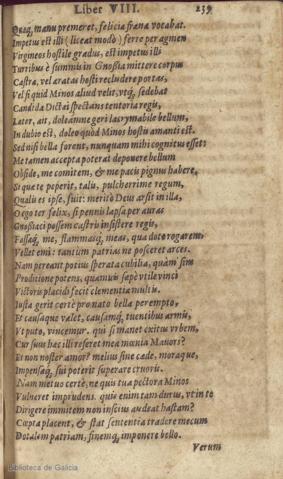 Liber VIII. 239
Quæq, manu premeret, felicia fræna vocabat.
Impetus est illi (liceat modò) ferre per agmen
Virgineos hostile gradus, est impetus illi
Turribus è summis in Gnosia mittere corpus
Castra, vel æratas hosti recludere portas,
Vel si quid Minos aliud velit, vtq́; sedebat
Candida Dictæi spectans tentoria regis,
Later, ait, doleámne geri lacrymabile bellum,
In dubio est, doleo quòd Minos hostis amanti est.
Sed nisi bella forent, nunquam mihi cognitus esset:
Me tamen accepta poterat deponere bellum
Obside, me comitem, & me pacis pignus habere,
Si quæ te peperit, talis, pulcherrime regum,
Qualis es ipse, fuit: meritò Deus arsit in illa,
O ego ter felix, si pennis lapsa per auras
Gnosiaci possem castris insistere regis,
Fassaq́; me, flammasq́; meas, qua dote rogarem,
Vellet emi: tantùm patrias ne posceret arces.
Nam pereant potius sperata cubilia, quàm sim
Proditione potens, quamuis sæpè vtile vinci
Victoris placidi fecit clementia multis.
Iusta gerit certè pro nato bella perempto,
Et causaque valet, causamq́; tuentibus armis,
Vt puto, vincemur. qui si manet exitus vrbem,
Cur suus hæc illi reseret mea mœnia Mauors?
Et non noster amor? melius sine cæde, moraque,
Impensaq́; sui poterit superare cruoris.
Nam metuo certè, ne quis tua pectora Minos
Vulneret imprudens. quis enim tam durus, vt in te
Dirigere immitem non inscius audeat hastam?
Cœpta placent, & stat sententia tradere mecum
Dotalem patriam, finemq́; imponere bello.
Verum
Biblioteca de Galicia